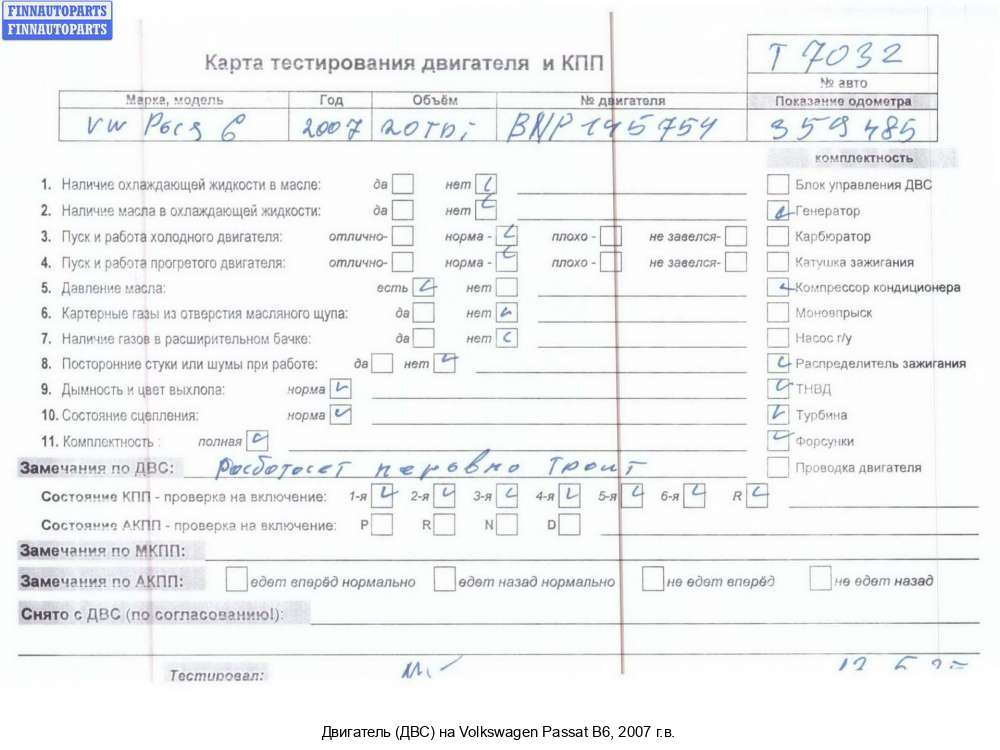 FINNAUTOPARTS
FINNAUTOPARTS
Карта тестирования двигателя и КПП
T 7032
№ авто
Марка, модель Год Объём № двигателя Показание одометра
VW 6 2007 2.0TDi BNP 195754 359485
комплектность
1. Наличие охлаждающей жидкости в масле: да нет Блок управления ДВС
2. Наличие масла в охлаждающей жидкости: да нет Генератор
3. Пуск и работа холодного двигателя: отлично- норма - плохо - не завелся- Карбюратор
4. Пуск и работа прогретого двигателя: отлично- норма - плохо - не завелся- Катушка зажигания
5. Давление масла: есть нет Компрессор кондиционера
6. Картерные газы из отверстия масляного щупа: да нет Моновпрыск
7. Наличие газов в расширительном бачке: да нет Насос г/у
8. Посторонние стуки или шумы при работе: да нет Распределитель зажигания
9. Дымность и цвет выхлопа: норма ТНВД
10. Состояние сцепления: норма Турбина
11. Комплектность : полная Форсунки
Замечания по ДВС: троит Проводка двигателя
Состояние КПП - проверка на включение: 1-я 2-я 3-я 4-я 5-я 6-я R
Состояние АКПП - проверка на включение: P R N D
Замечания по МКПП:
Замечания по АКПП: едет вперёд нормально едет назад нормально не едет вперёд не едет назад
Снято с ДВС (по согласованию!):
Тестировал:
Двигатель (ДВС) на Volkswagen Passat B6, 2007 г.в.